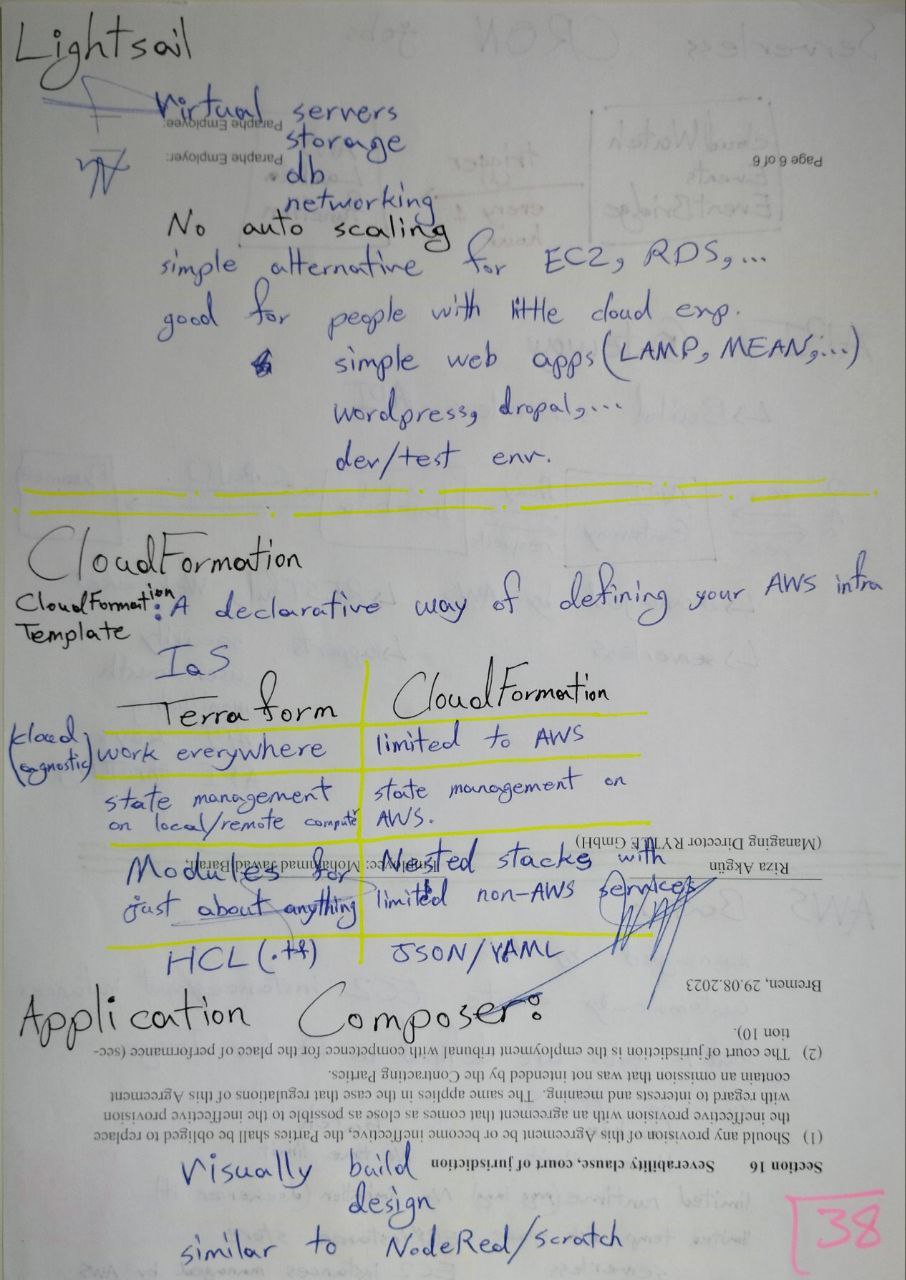 Lightsail
virtual servers
storage
db
networking
No auto scaling
simple alternative for EC2, RDS, ...
good for people with little cloud exp.
simple web apps (LAMP, MEAN, ...)
wordpress, dropal, ...
dev/test env.
CloudFormation
CloudFormation Template: A declarative way of defining your AWS infra
IaS
Terraform CloudFormation
(kloud agnostic) work everywhere limited to AWS
state management state management on
on local/remote computer AWS.
Modules for Nested stacks with
just about anything limited non-AWS services
HCL (.tf) JSON/YAML
Application Composer:
visually build
design
similar to NodeRed/scratch
38
Section 16 Severability clause, court of jurisdiction
(1) Should any provision of this Agreement be or become ineffective, the Parties shall be obliged to replace
the ineffective provision with an agreement that comes as close as possible to the ineffective provision
with regard to interests and meaning. The same applies in the case that regulations of this Agreement
contain an omission that was not intended by the Contracting Parties.
(2) The court of jurisdiction is the employment tribunal with competence for the place of performance (sec-
tion 10).
Bremen, 29.08.2023
Riza Akgün
(Managing Director RYTLE GmbH)
Employee: Mohammad Jawad Barati
Page 6 of 6
Paraphe Employer:
Paraphe Employee: